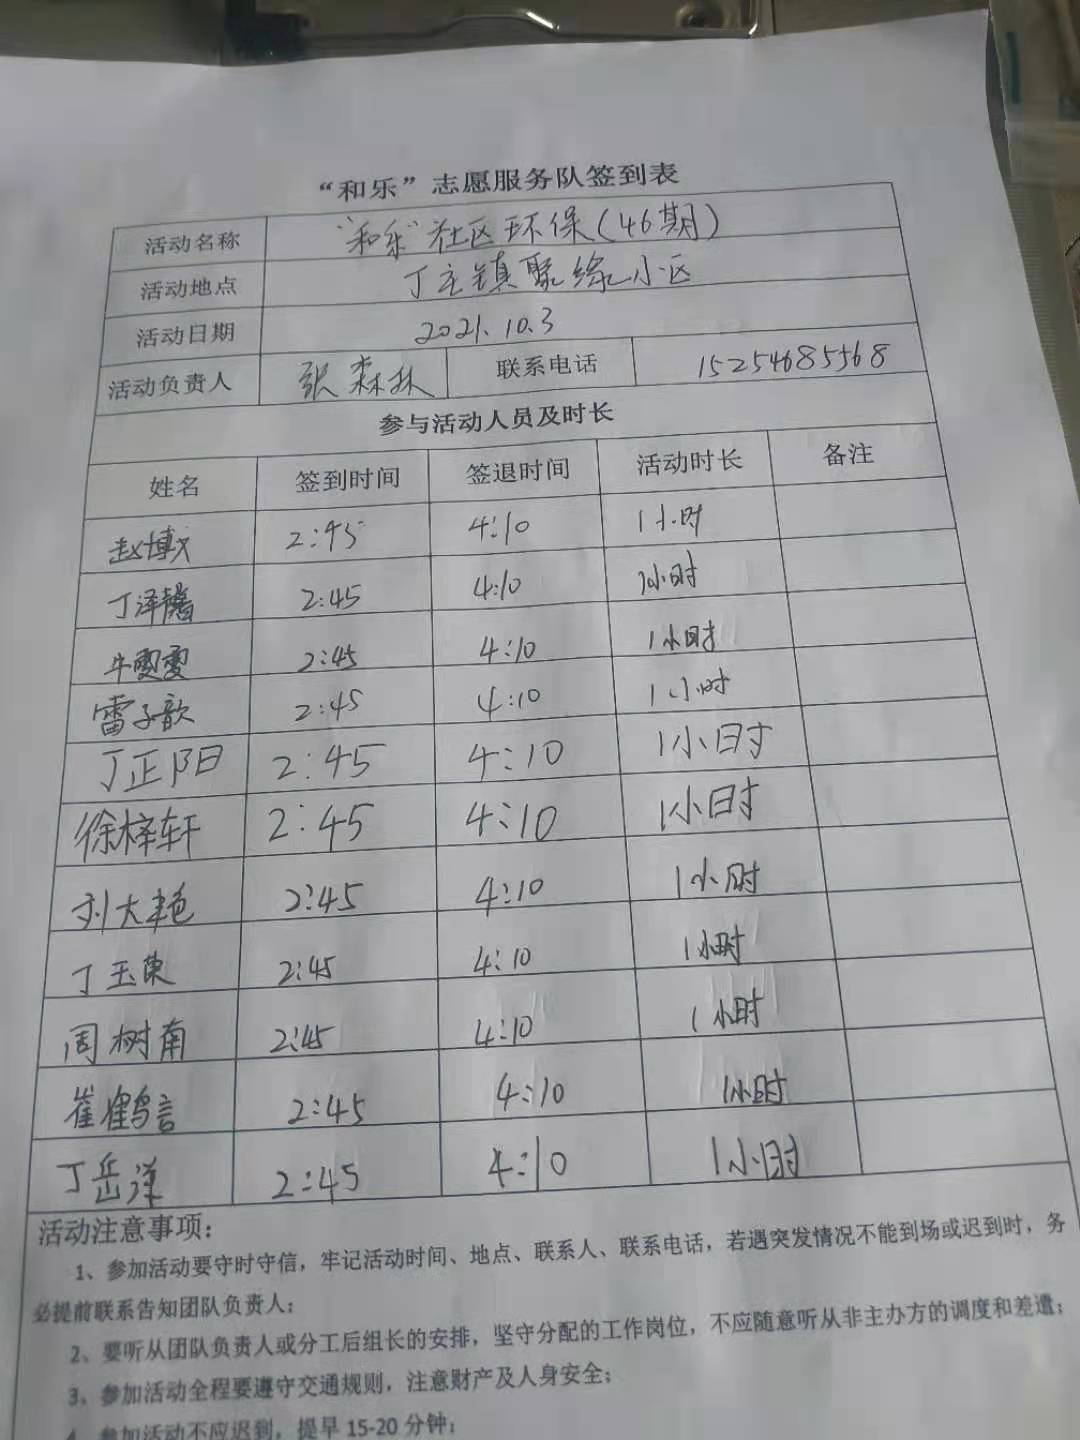 “和乐”志愿服务队签到表
活动名称 “和乐”社区环保(46期)
活动地点 丁庄镇聚缘小区
活动日期 2021.10.3
活动负责人 张森林 联系电话 15254685568
参与活动人员及时长
姓名 签到时间 签退时间 活动时长 备注
赵博文 2:45 4:10 1小时
丁泽馨 2:45 4:10 1小时
牛雯雯 2:45 4:10 1小时
雷子歆 2:45 4:10 1小时
丁正阳 2:45 4:10 1小时
徐梓轩 2:45 4:10 1小时
刘大艳 2:45 4:10 1小时
丁玉荣 2:45 4:10 1小时
周树南 2:45 4:10 1小时
崔鹤言 2:45 4:10 1小时
丁岳洋 2:45 4:10 1小时
活动注意事项:
1、参加活动要守时守信，牢记活动时间、地点、联系人、联系电话，若遇突发情况不能到场或迟到时，务
必提前联系告知团队负责人;
2、要听从团队负责人或分工后组长的安排，坚守分配的工作岗位，不应随意听从非主办方的调度和差遣;
3、参加活动全程要遵守交通规则，注意财产及人身安全;
4、参加活动不应迟到，提早 15-20 分钟;